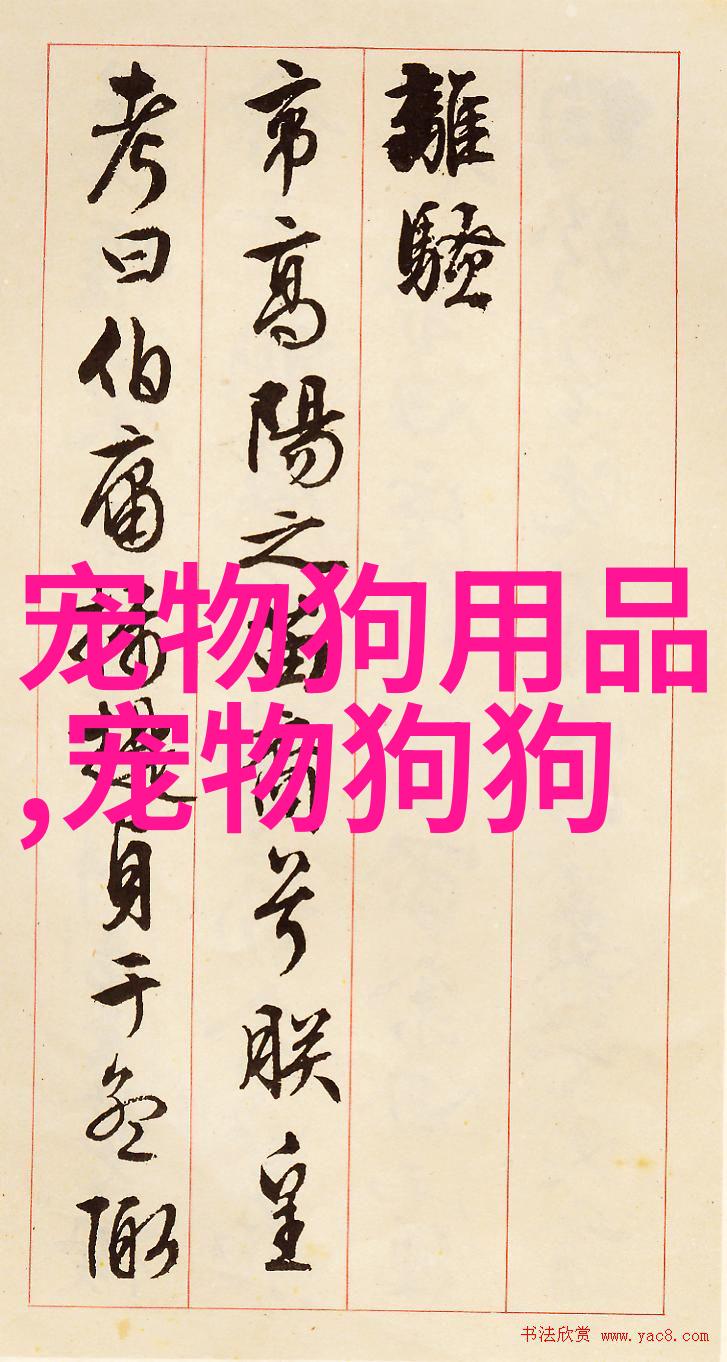 離騷
帝高陽之苗裔兮朕皇
考曰伯庸攝提貞于孟陬
宠物狗用品
,宠物狗狗
书法欣赏 www.yac8.com